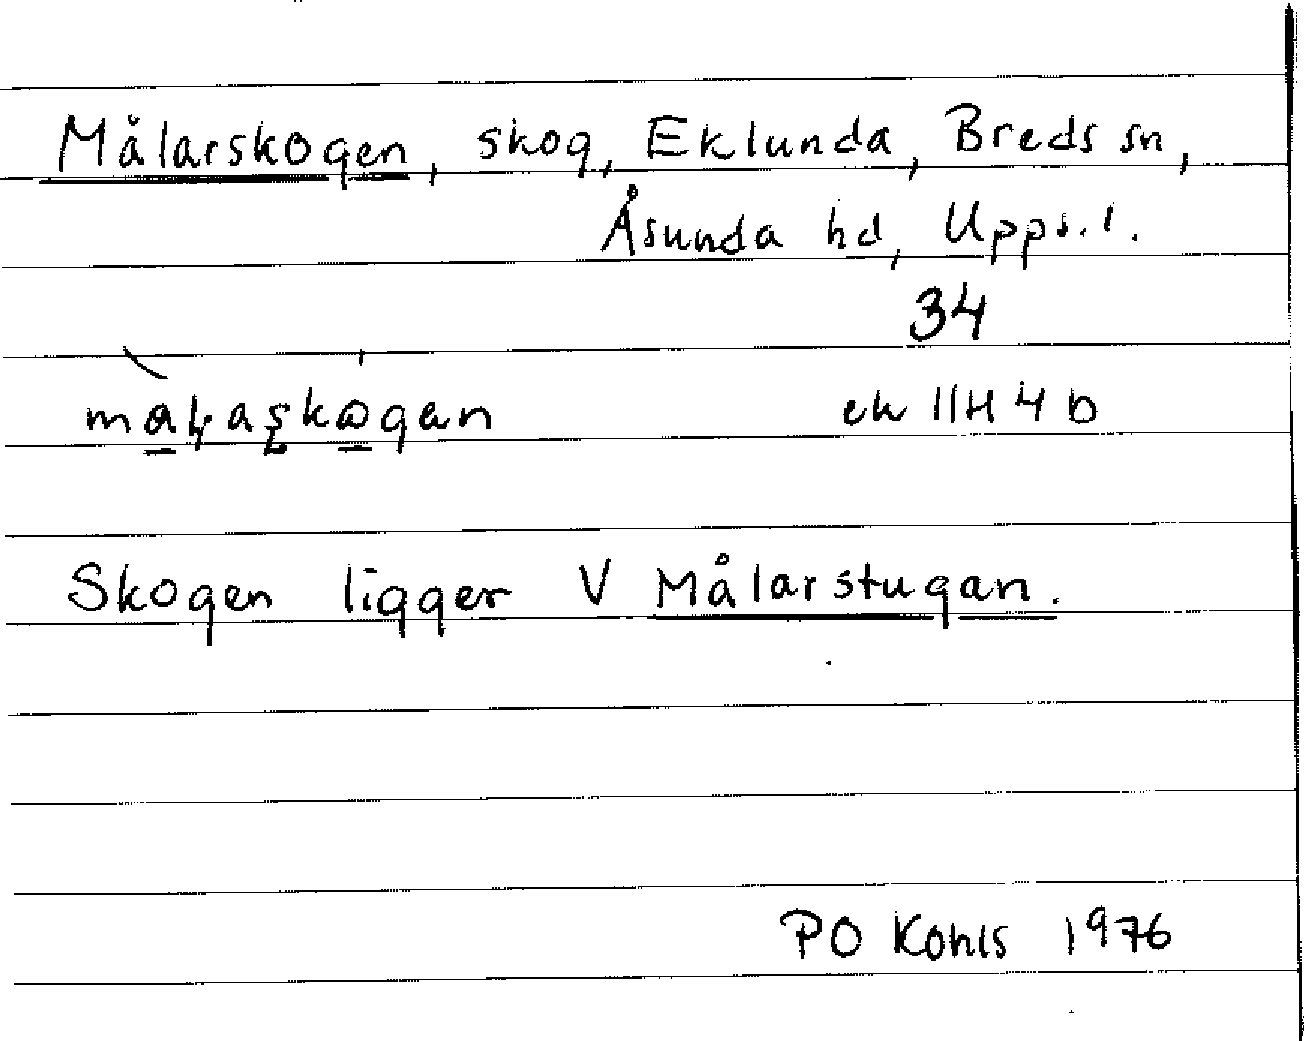 Målarskogen, skog, Eklunda, Breds sn,
Åsunda hd, Upps. l.
34
ek 11H 4b
Skogen ligger V Målarstugan.
PO Kohls 1976